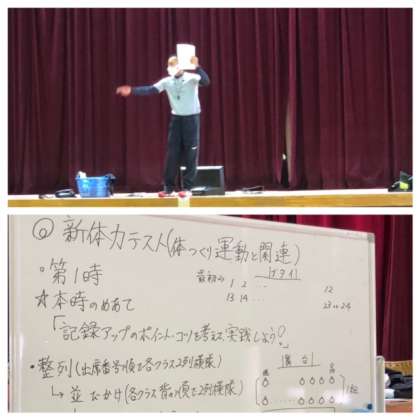 ◎ 新体力テスト(体つくり運動と関連)
・第1時
☆本時のめあて
「記録アップのポイント・コツを考えて、実践しよう。」
・整列(出席番号順で各クラス2列横隊)
↳ 並びかけ(各クラス背の順で2列横隊)
最初の
1 2 … 12
13 14 … 23 24
舞台